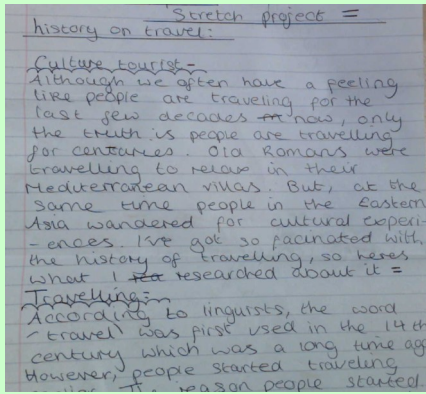 Stretch project =
history on travel:
Culture tourist -
Although we often have a feeling
like people are traveling for the
last few decades now, only
the truth is people are travelling
for centuries. Old Romans were
travelling to relax in their
Mediterranean villas. But, at the
same time people in the Eastern
Asia wandered for cultural experi-
-ences. I've got so facinated with
the history of travelling, so heres
what I researched about it =
Travelling:-
According to linguists, the word
'travel' was first used in the 14th
century which was a long time ago
However, people started traveling
The reason people started